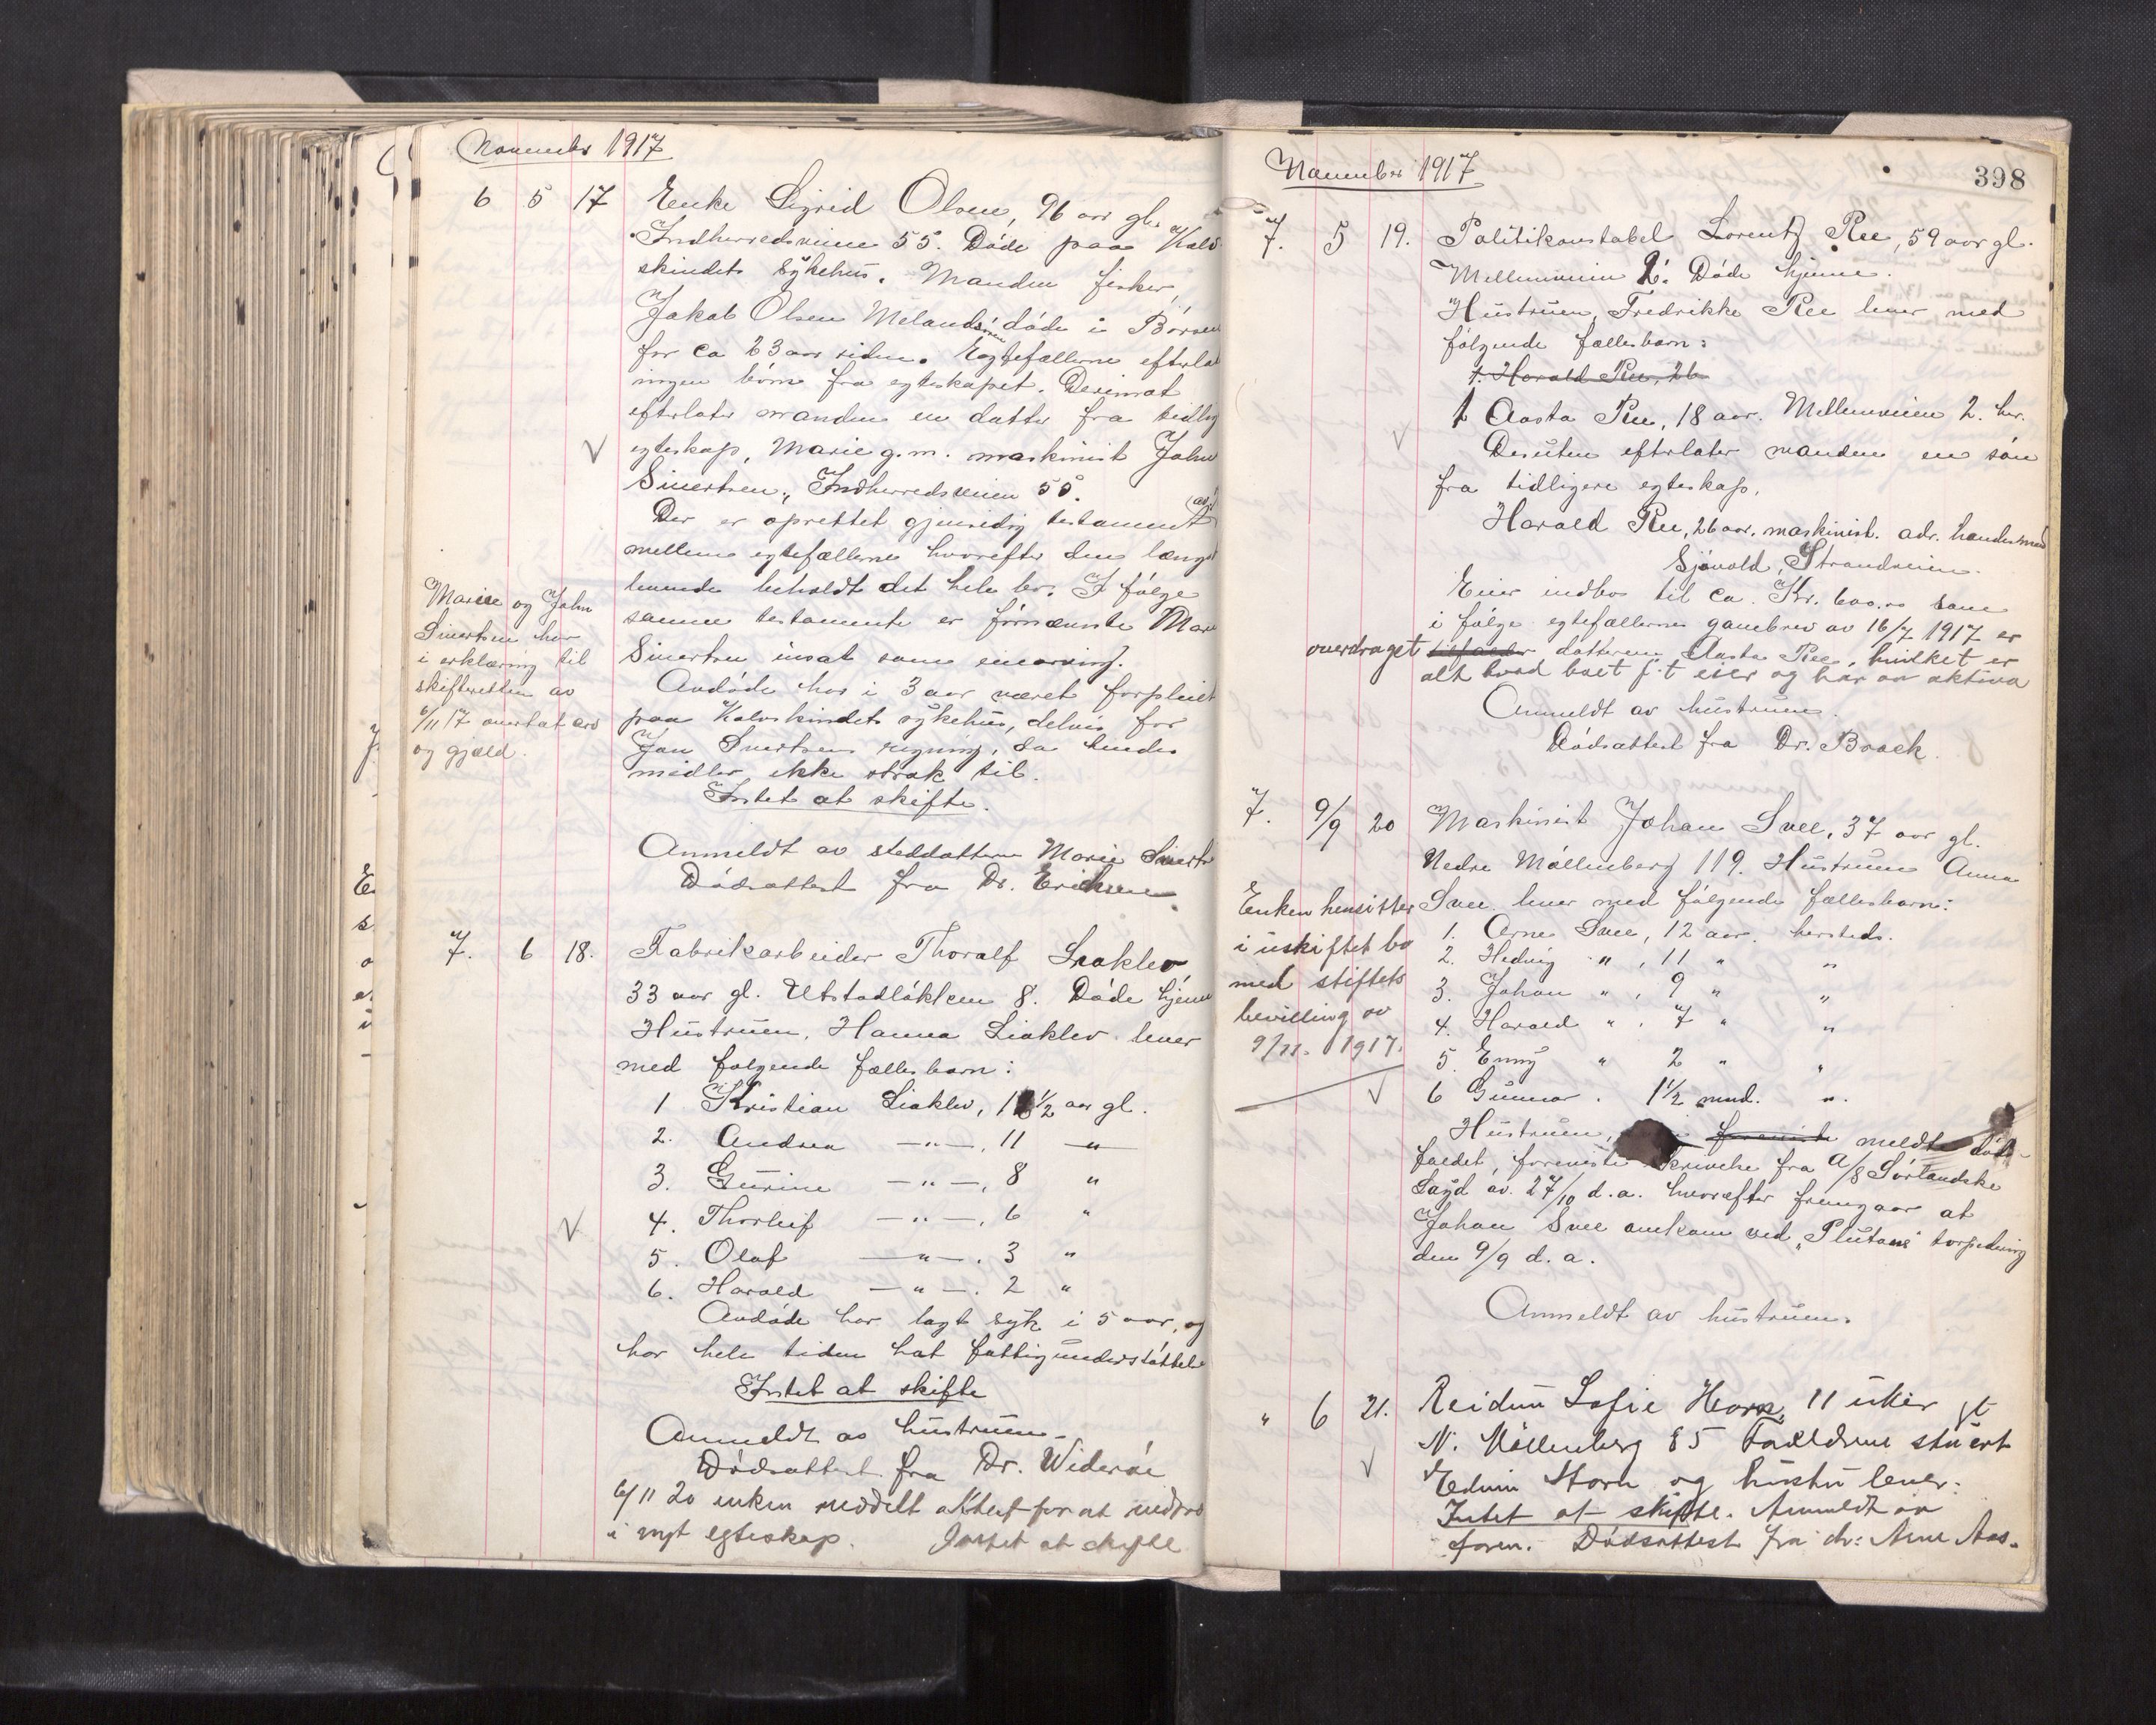 November 1917
6 5 17 Enke Sigrid Olsen, 96 aar gl.
Indherredsveien 55. Döde paa Kalv
skindets sykehus. Manden fisker,
Jakob Olsen Melandsören döde i Börsen
for ca 23 aar siden. Egtefællerne efterla
ingen börn fra egteskapet. Derimot
efterlater manden en datter fra tidlig
egteskap, Marie g.m. maskinist John
Sivertsen, Indherredsveien 55.
Der er oprettet gjensidig testament
mellem egtefællerne hvorefter den længst
levende beholdt det hele bo. I følge
samme testamente er förnævnte Mar
Sivertsen insat som enearving.
Avdöde har i 3 aar været forpleiet
paa Kalvskindets sykehus, delvis for
Jon Sivertsens regning, da hendes
midler ikke strak til.
Intet at skifte.
Marie og John
Sivertsen har
i erklæring til
skifteretten av
6/11 17 overtat arv
og gjæld.
Anmeldt av steddatteren Marie Sivert
Dödsattest fra Dr. Eriksen
7. 6 18. Fabrikarbeider Thoralf Liaklev
33 aar gl. Ulstadlökken 8. Döde hjemme
Hustruen, Hanna Liaklev lever
med følgende fællesbarn:
1 Kristian Liaklev, 1 1/2 aar gl.
2. Andrea —"—, 11 —"—
3. Gurine —"—, 8 "
4. Thorleif —"—, 6 "
5. Olaf —"—, 3 "
6. Harald —"—. 2 "
Avdöde har lagt syk i 5 aar, og
har hele tiden hat fattigunderstöttelse
Intet at skifte
Anmeldt av hustruen.
Dödsattest fra Dr. Wideröe
6/11 20 enken meddelt attest for at indtræ
i nyt egteskap. Intet at skifte
November 1917
398
7. 5 19. Politikonstabel Lorentz Ree, 59 aar gl.
Mellemveien 2. Döde hjemme.
Hustruen, Fredrikke Ree lever med
følgende fællesbarn:
1. Harald Ree, 26
1 Aasta Ree, 18 aar. Mellemveien 2. her.
Desuten efterlater manden en sön
fra tidligere egteskap,
Harald Ree, 26 aar, maskinist. adr. handelsmand
Sjövold, Strandveien.
Eier indbo til ca. Kr. 600.00 som
i følge egtefællernes gavebrev av 16/7 1917 er
overdraget tilfalder datteren Aasta Ree, hvilket er
alt hvad boet f.t eier og har av aktiva
Anmeldt av hustruen.
Dödsattest fra Dr. Brock.
7. 9/9 20 Maskinist Johan Svee, 37 aar gl.
Nedre Möllenberg 119. Hustruen Anna
Svee lever med følgende fællesbarn:
1. Arne Svee, 12 aar. hersteds.
2. Hedvig " , 11 " "
3. Johan " , 9 " "
4. Harald " , 7 " "
5. Enny " 2 " "
6 Gunnar . 1 1/2 mnd. ".
Enken hensitter
i uskiftet bo
med stiftets
bevilling av
9/11. 1917.
Hustruen, meldte döds-
faldet, foreviste skrivelse fra A/S Sörlandske
Lloyd av. 27/10 d.a. hvorefter fremgaar at
Johan Svee omkom ved „Plutons" torpedering
den 9/9 d.a.
Anmeldt av hustruen.
" 6 21. Reidun Sofie Horn, 11 uker gl
N. Möllenberg 85 Forældrene stuert
Edvin Horn og hustru lever.
Intet at skifte. Anmeldt av
faren. Dödsattest fra dr: Arne Aas.